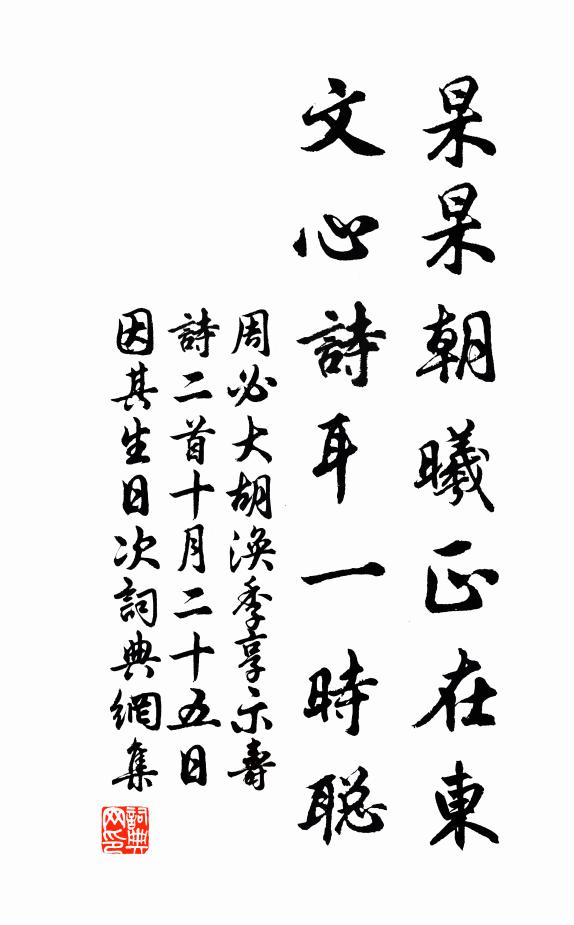 杲杲朝曦正在東
文心詩耳一時聪
周必大胡涣季享示壽
詩二首十月二十五日
因其生日次詞典網集
詞典网印